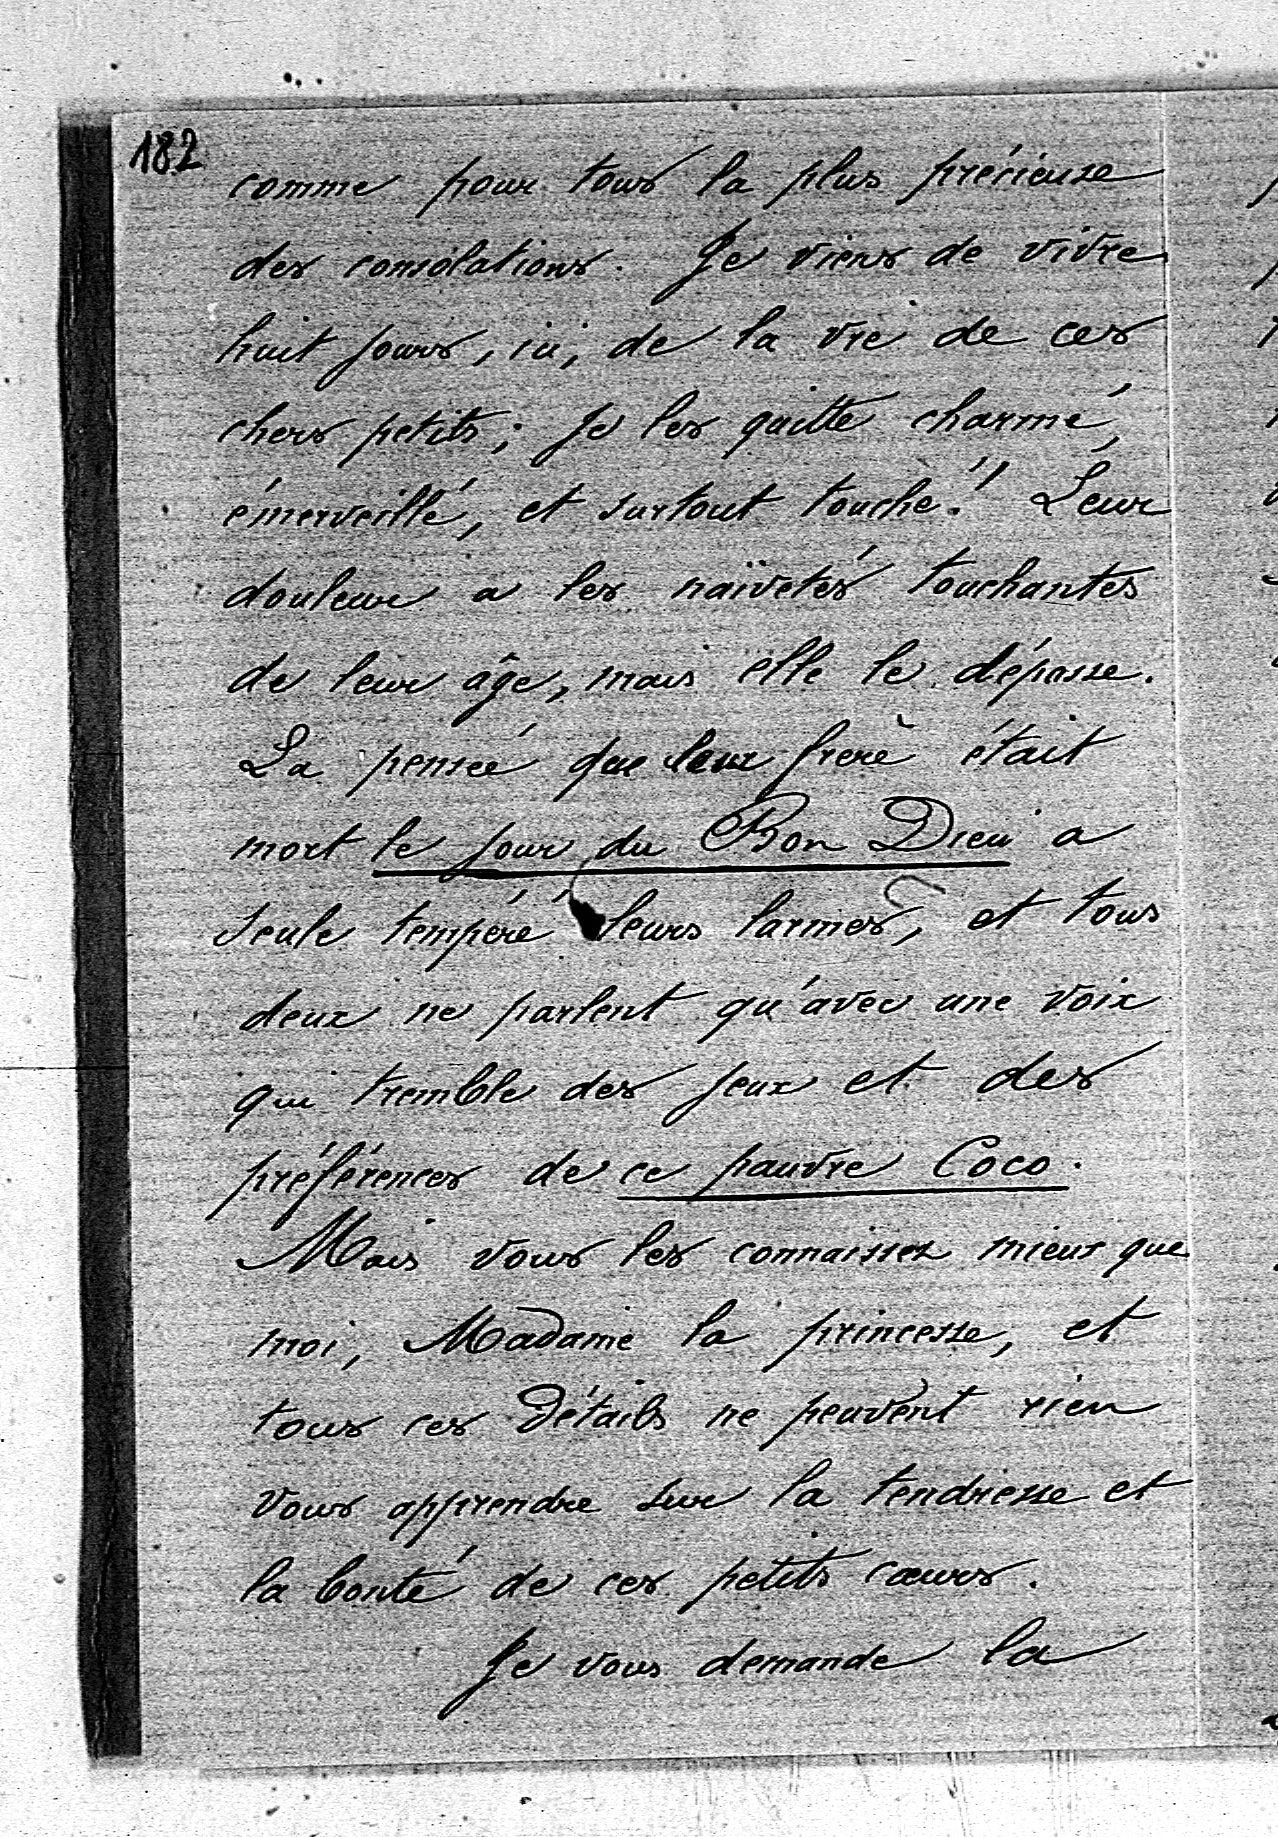 182
comme pour tous la plus précieuse
des consolations. Je viens de vivre
huit jours, ici, de la vie de ces
chers petits; je les quitte charmé,
émerveillé, et surtout touché! Leur
douleur a les naïvetés touchantes
de leur âge, mais elle le dépasse.
La pensée que leur frère était
mort le jour du Bon Dieu a
seule tempéré leurs larmes, et tous
deux ne parlent qu'avec une voix
qui tremble des jeux et des
préférences de ce pauvre Coco.
Mais vous les connaissez mieux que
moi, Madame la princesse, et
tous ces détails ne peuvent rien
vous apprendre sur la tendresse et
la bonté de ces petits cœurs.
Je vous demande la